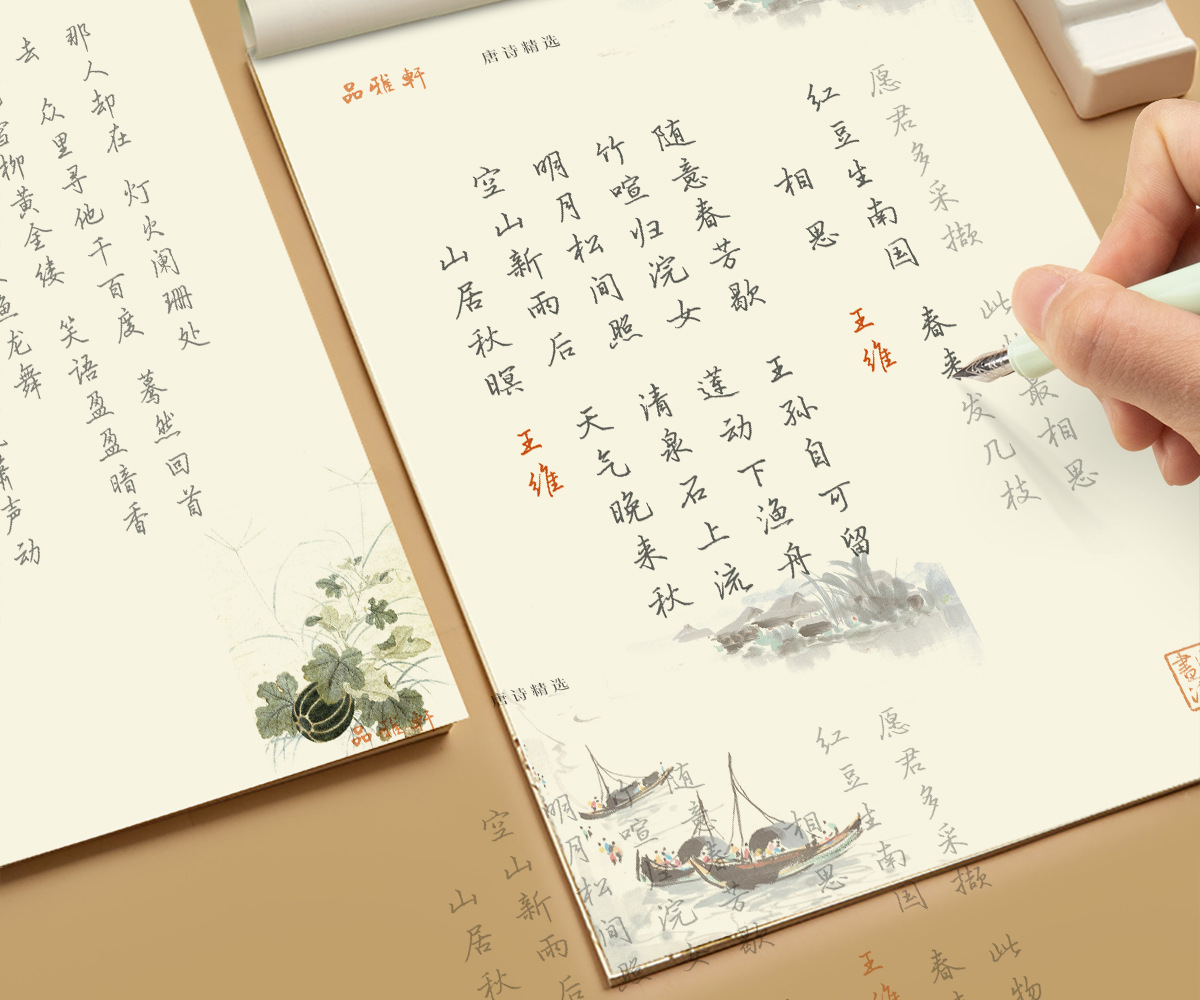 声动
龙舞
柳黄金缕 笑语盈盈暗香
去 众里寻他千百度 蓦然回首
那人却在 灯火阑珊处
品雅軒
唐诗精选
品雅軒
山居秋暝
王维
空山新雨后 天气晚来秋
明月松间照 清泉石上流
竹喧归浣女 莲动下渔舟
随意春芳歇 王孙自可留
相思
王维
红豆生南国 春来发几枝
愿君多采撷 此 最相思
唐诗精选
山居秋
空山新雨后
明月松间照
竹喧归浣女
随意春芳歇
相思
王维
红豆生南国 春
愿君多采撷 此物